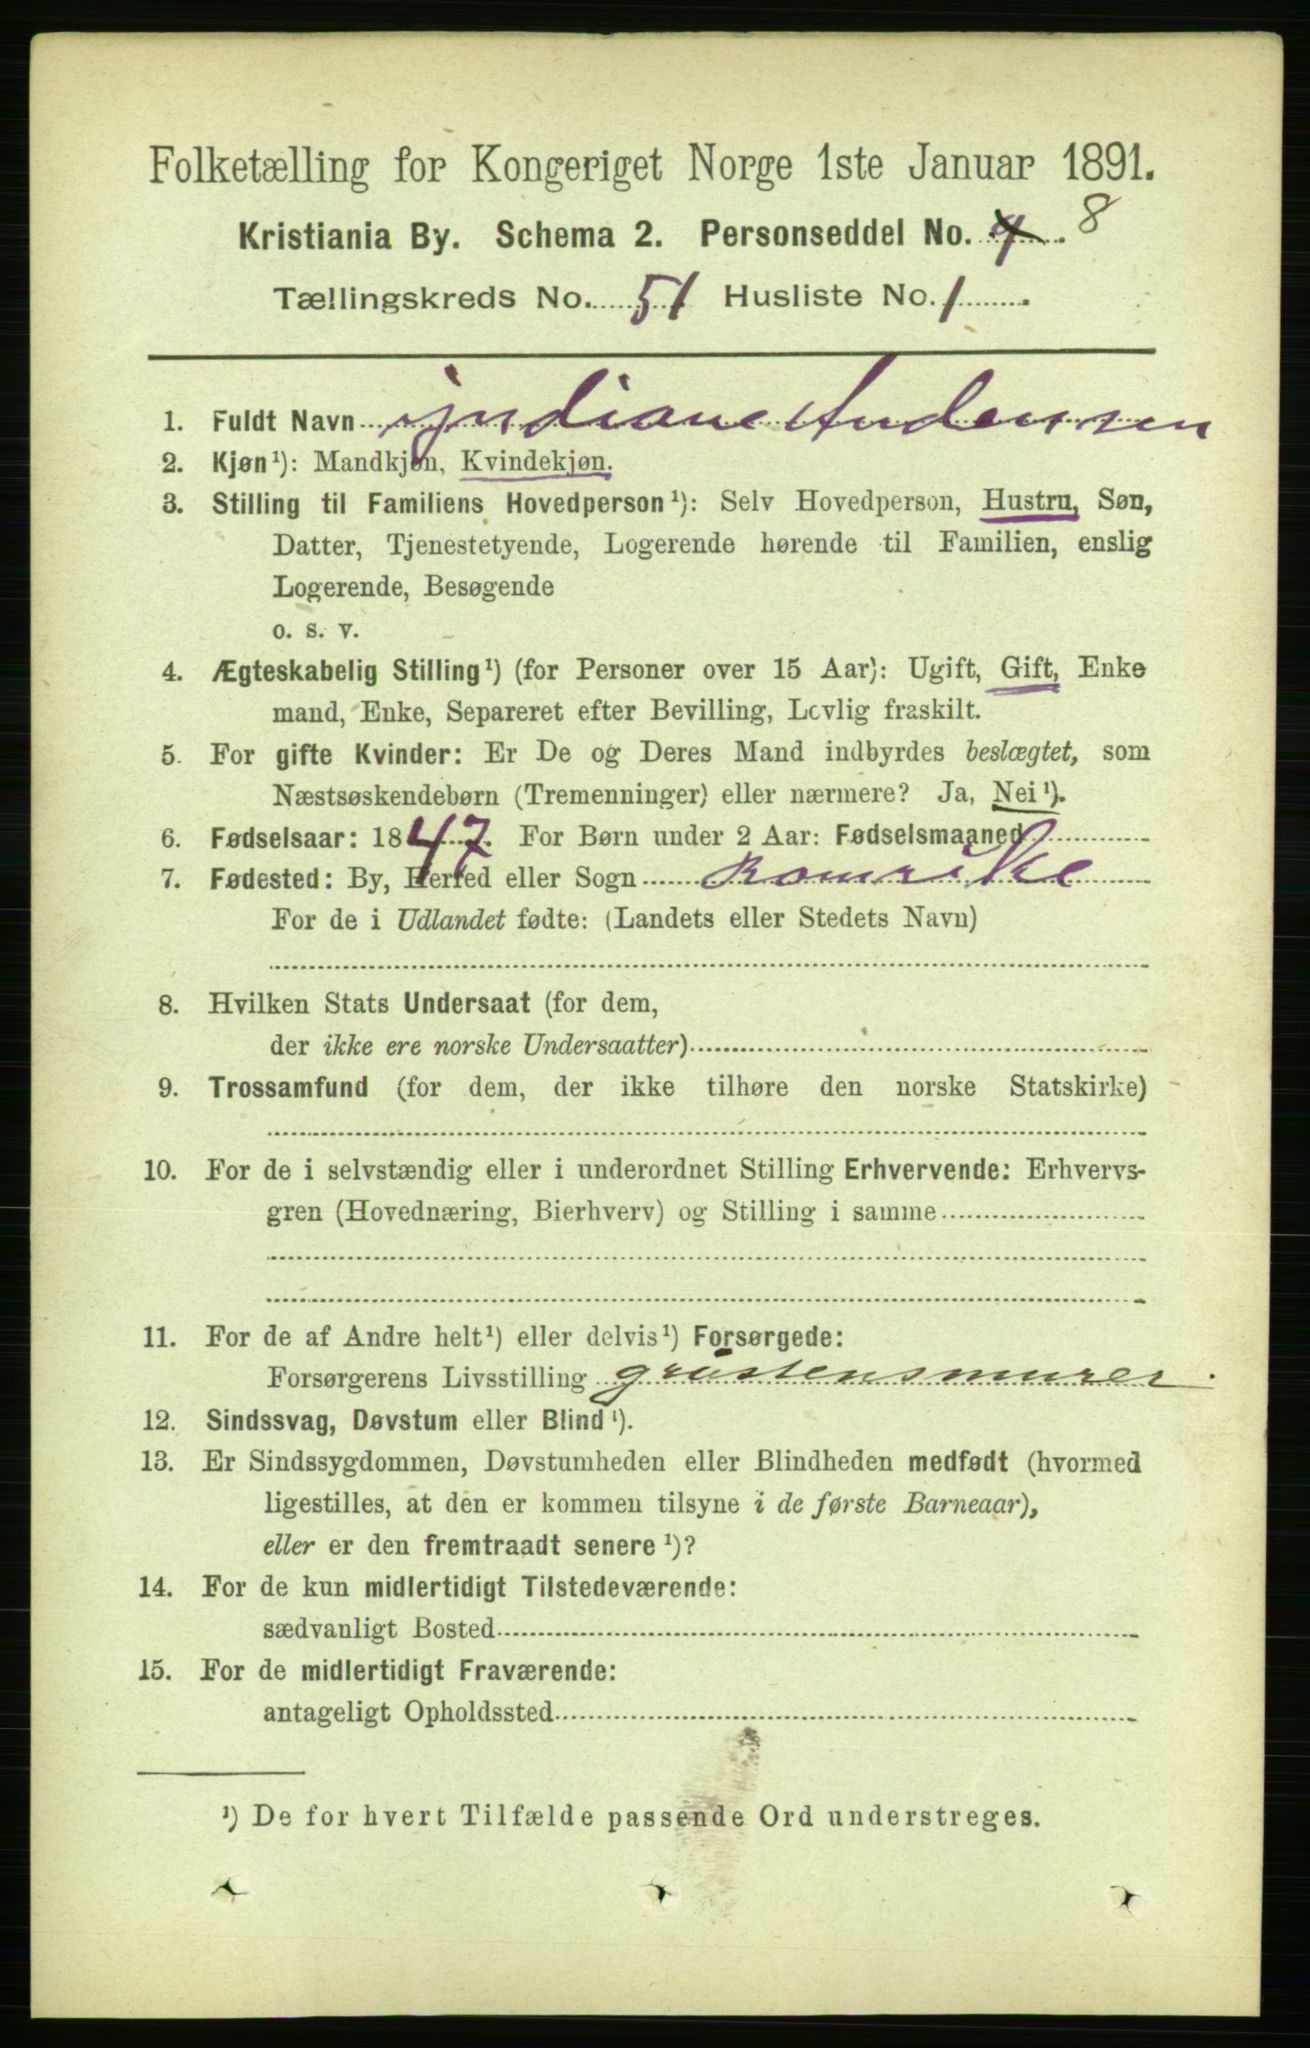 Folketælling for Kongeriget Norge 1ste Januar 1891.
Kristiania By. Schema 2. Personseddel No. 8
Tællingskreds No. 51 Husliste No. 1
1. Fuldt Navn Indiane Andersen
2. Kjøn¹): Mandkjøn, Kvindekjøn.
3. Stilling til Familiens Hovedperson¹): Selv Hovedperson, Hustru, Søn,
Datter, Tjenestetyende, Logerende hørende til Familien, enslig
Logerende, Besøgende
o. s. v.
4. Ægteskabelig Stilling¹) (for Personer over 15 Aar): Ugift, Gift, Enke
mand, Enke, Separeret efter Bevilling, Lovlig fraskilt.
5. For gifte Kvinder: Er De og Deres Mand indbyrdes beslægtet, som
Næstsøskendebørn (Tremenninger) eller nærmere? Ja, Nei¹).
6. Fødselsaar: 1847. For Børn under 2 Aar: Fødselsmaaned
7. Fødested: By, Herred eller Sogn Romrike
For de i Udlandet fødte: (Landets eller Stedets Navn)
8. Hvilken Stats Undersaat (for dem,
der ikke ere norske Undersaatter)
9. Trossamfund (for dem, der ikke tilhøre den norske Statskirke)
10. For de i selvstændig eller i underordnet Stilling Erhvervende: Erhvervs-
gren (Hovednæring, Bierhverv) og Stilling i samme
11. For de af Andre helt¹) eller delvis¹) Forsørgede:
Forsørgerens Livsstilling gråstensmurer.
12. Sindssvag, Døvstum eller Blind¹).
13. Er Sindssygdommen, Døvstumheden eller Blindheden medfødt (hvormed
ligestilles, at den er kommen tilsyne i de første Barneaar),
eller er den fremtraadt senere¹)?
14. For de kun midlertidigt Tilstedeværende:
sædvanligt Bosted
15. For de midlertidigt Fraværende:
antageligt Opholdssted
¹) De for hvert Tilfælde passende Ord understreges.